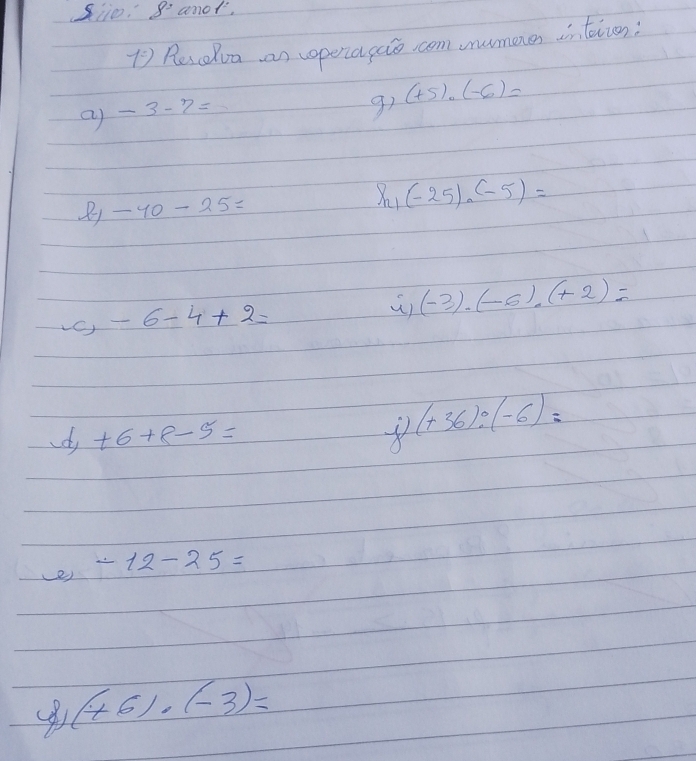 8º ano
1º) Resolva as operação com numeros inteiros:
a) - 3 - 7 =
g) (+5) . (-6) =
b) - 40 - 25 =
h) (-25) . (-5) =
c) - 6 - 4 + 2 =
i) (-3) . (-6) . (+2) =
d) + 6 + 8 - 5 =
j) (+36) : (-6) =
e) - 12 - 25 =
f) (+6) . (-3) =